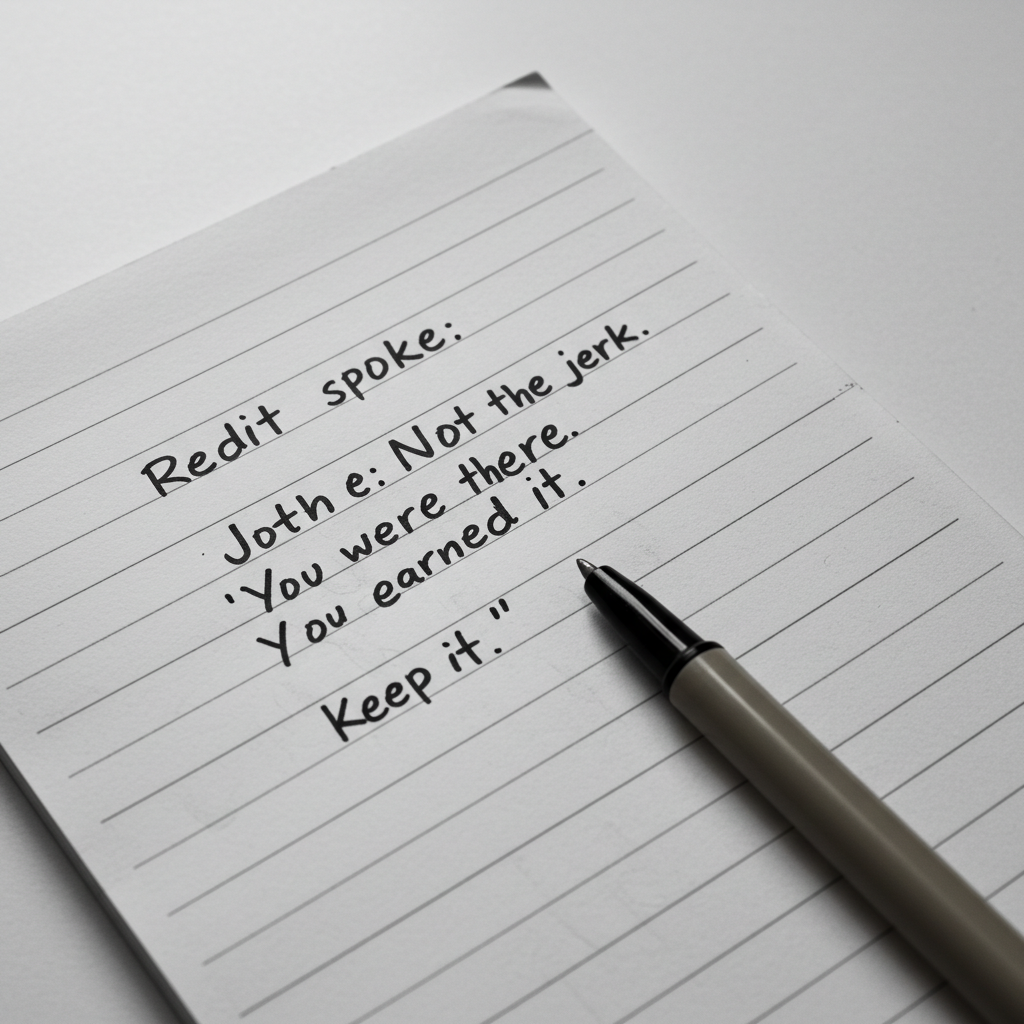 Redit spoke:
Joth e: Not the jerk.
'You were there.
You earned it.
Keep it."